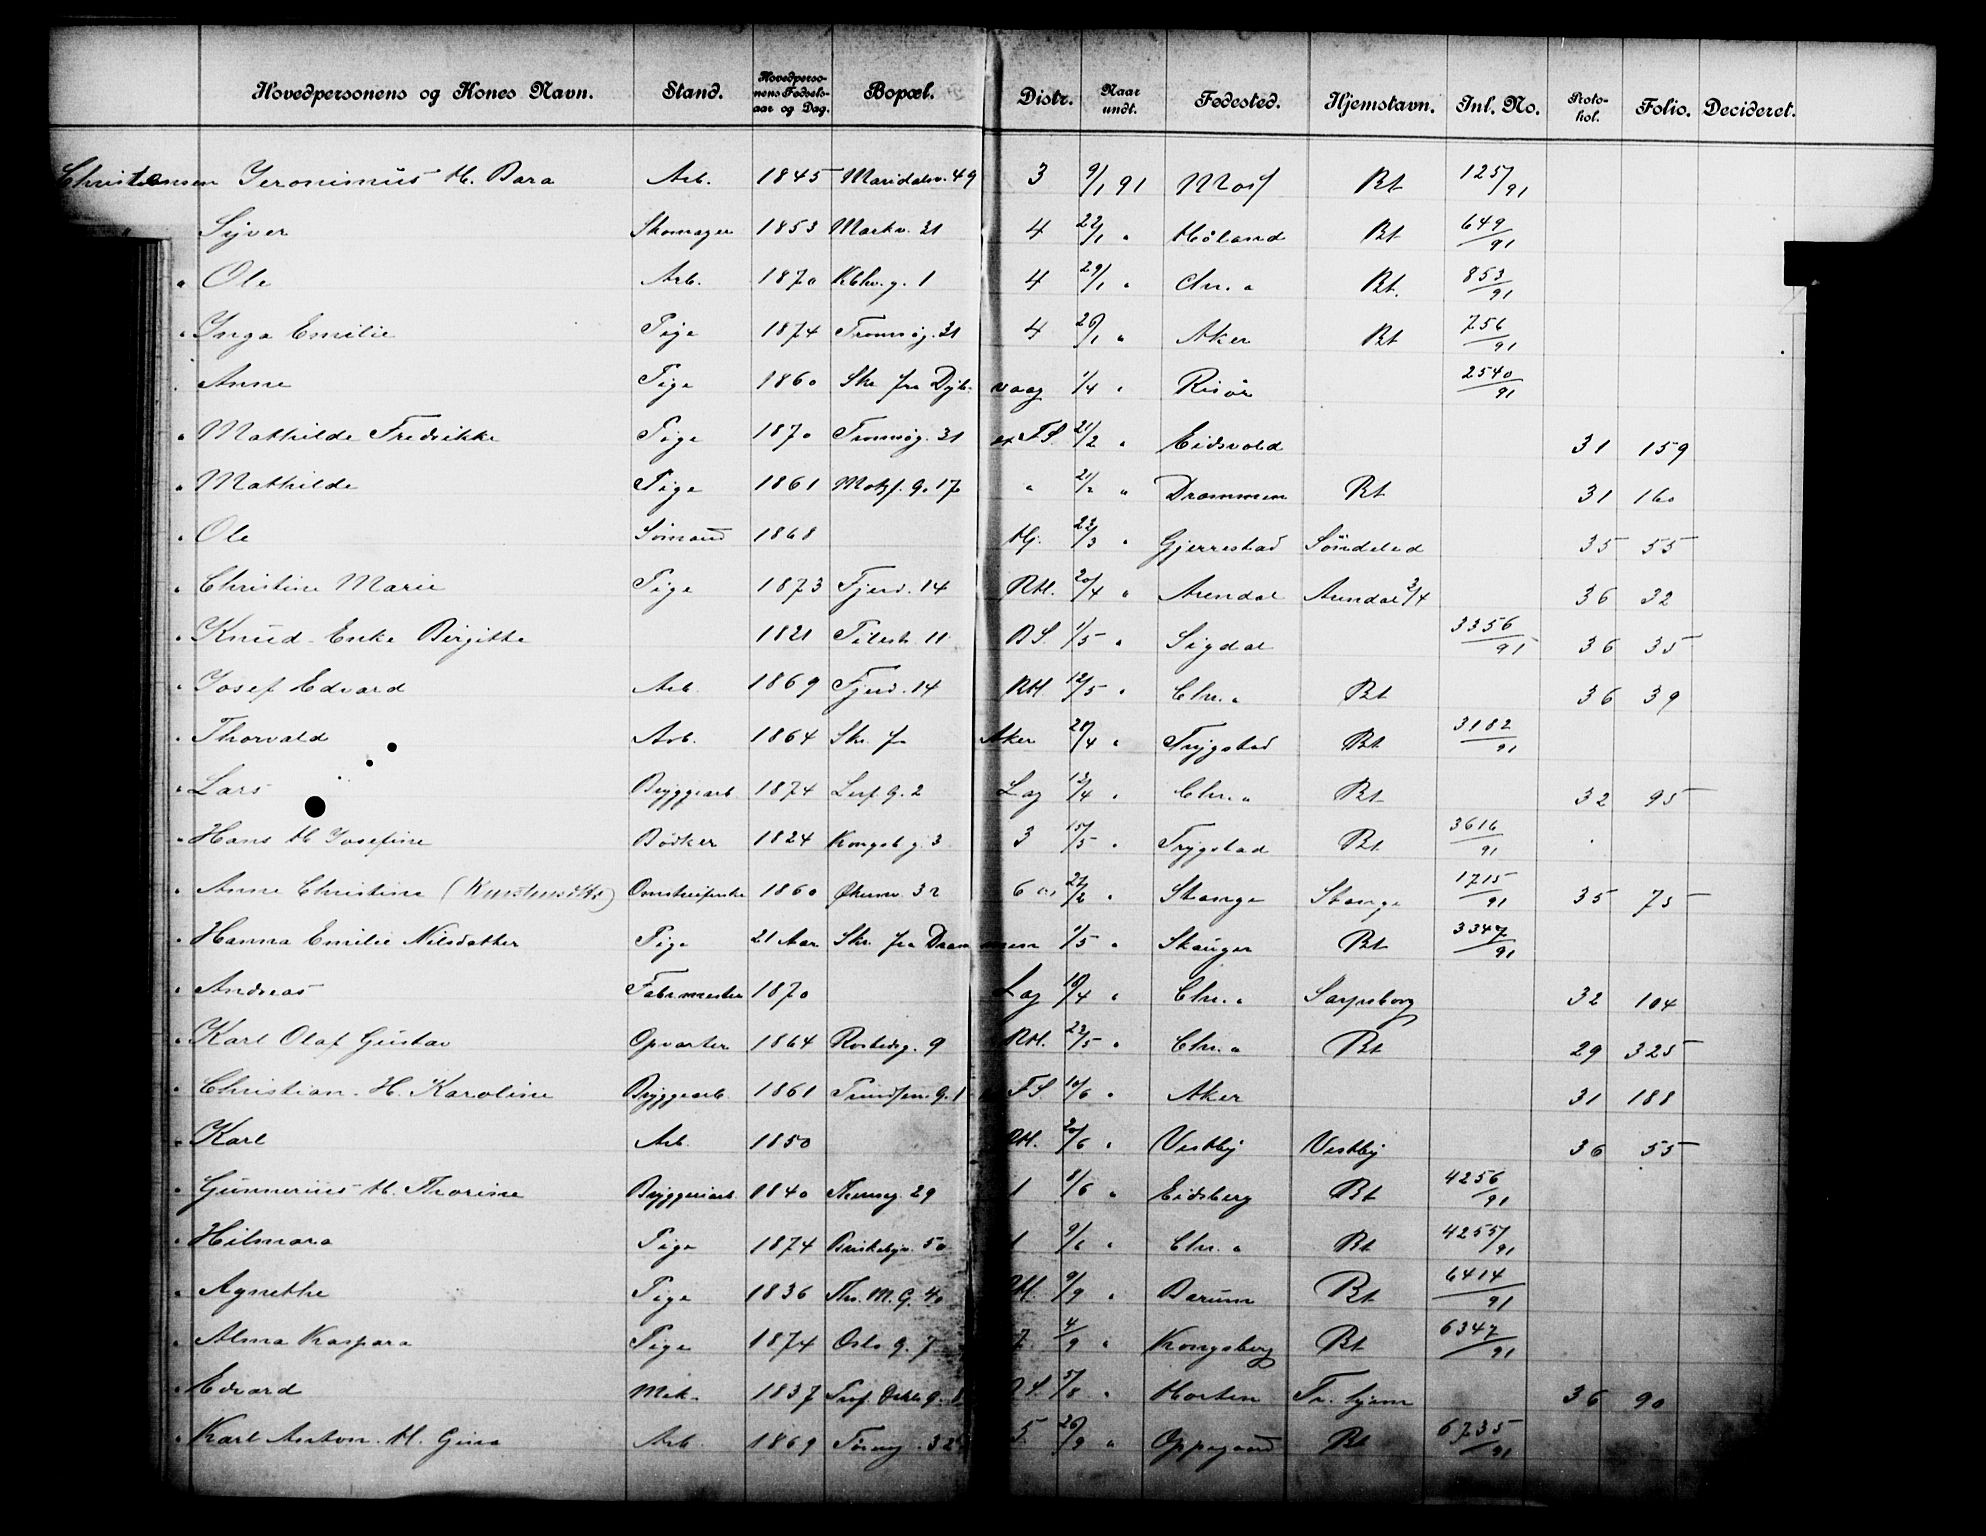 Hovedpersonens og Kones Navn. Stand. Hovedpersonens Fødselsaar og Dag. Bopæl. Distr. Naar undt. Fødested. Hjemstavn. Inl. No. Protokol. Folio. Decideret.
Christensen Jeronimus H. Bara Arb. 1845 Maridalsv. 49 3 9/1 91 Moss Bt 1257/91
" Syver Skomager 1853 Markv. 31 4 22/1 " Høland Bt 649/91
" Ole Arb. 1870 Kbhv. g. 1 4 29/1 " Chr.a Bt. 853/91
" Inga Emilie Pige 1874 Tromsøg. 31 4 26/1 " Aker Bt 756/91
" Anne Pige 1860 Skr. fra Dybvaag 1/4 " Risør 2540/91
" Mathilde Fredrikke Pige 1870 Tromsøg. 31 FS. 21/2 " Eidsvold 31 159
" Mathilde Pige 1861 Motzf. g. 17 " 21/2 " Drammen Bt 31 160
" Ole Sømand 1868 Hj. 23/3 " Gjerrestad Søndeled 35 55
" Christine Marie Pige 1873 Fjerd. 14 RH. 20/4 " Arendal Arendal 3/4 36 32
" Knud - Enke Birgitte 1821 Tøiest. 11 BS. 1/5 " Sigdal 3356/91 36 35
" Josef Edvard Arb. 1869 Fjerd. 14 RH 12/5 " Chr.a Bt 36 39
" Thorvald Arb. 1864 Skr. fra Aker 28/4 " Trygstad Bt 3182/91
" Lars Byggearb. 1874 Leif. g. 2 Lag 13/4 " Chr.a Bt 32 95
" Hans H Josefine Bødker 1824 Kongsb g. 3 3 15/5 " Trygstad Bt 3616/91
" Anne Christine 1860 Økernv. 32 6 22/2 " Stange Stange 1715/91 35 75
" Hanna Emilie Nilsdatter Pige 21 Aar Skr. fra Drammen 1/5 " Skauger Bt 3347/91
" Andreas 1870 Lag 18/4 " Chr.a Sarpsborg 32 104
" Karl Olaf Gustav Opvarter 1864 Rostedsg. 9 RH. 22/5 " Chr.a Bt 29 325
" Christian. H. Karoline Byggearb. 1861 g. 1 FS. 10/6 " Aker 31 188
" Karl Arb. 1850 RH. 20/6 " Vestby Vestby 36 55
" Gunnerius H. Thorine Byggeriarb. 1840 29 1 8/6 " Eidsberg Bt 4256/91
" Hilmara Pige 1874 Briskebyv. 50 1 9/6 " Chr.a Bt 4255/91
" Agnethe Pige 1836 Ths. M. G. 40 RH. 9/9 " Bærum Bt 6414/91
" Alma Kaspara Pige 1874 Oslo g. 7 7 4/9 " Kongsberg Bt 6347/91
" Edvard Mek. 1837 5/8 " Horten Tr. hjem 36 90
" Karl Anton. H. Gina Arb. 1869 32 5 26/9 " Oppegaard Bt 6735/91